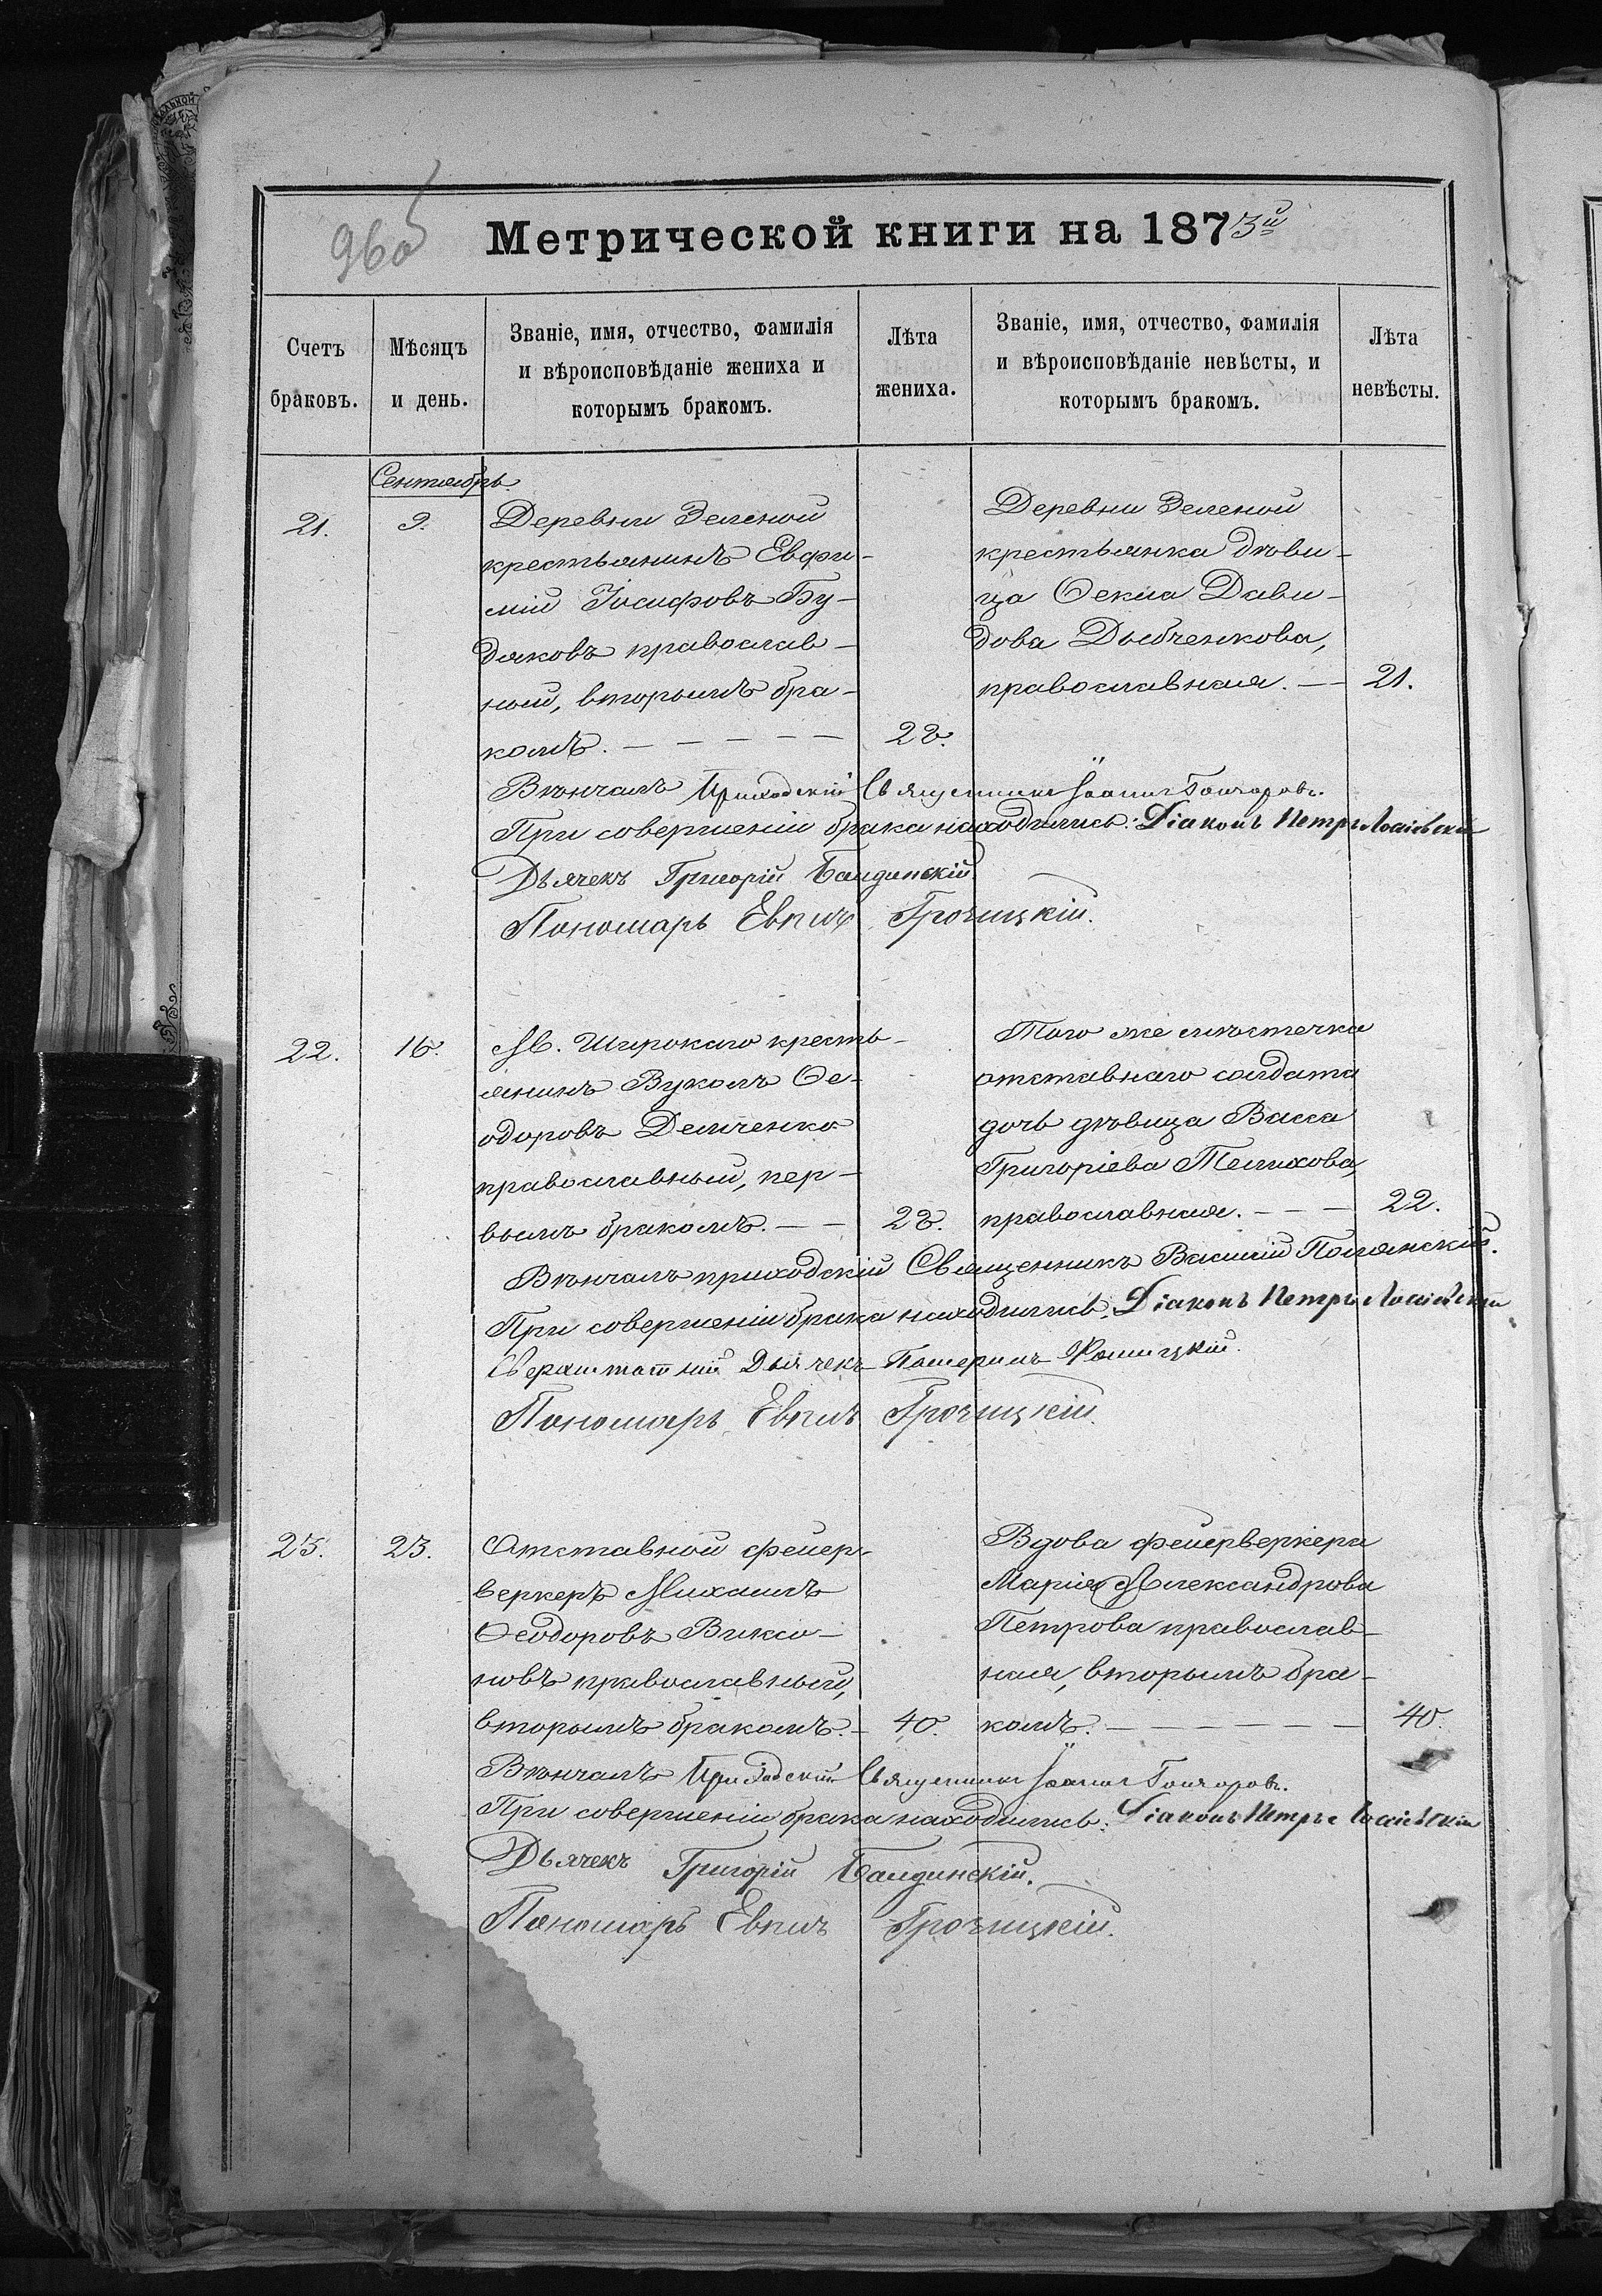 96об
Метрической книги на 1873й
Счетъ браковъ.
Мѣсяцъ и день.
Званіе, имя, отчество, фамилія и вѣроисповѣданіе жениха и которымъ бракомъ.
Лѣта жениха.
Званіе, имя, отчество, фамилія и вѣроисповѣданіе невѣсты, и которымъ бракомъ.
Лѣта невѣсты.
Сентябрь.
21.
9.
Деревни Зеленой
крестьянинъ Евфи-
мій Іосифовъ Бу-
дяковъ православ-
ный, вторымъ бра-
комъ.
Деревни Зеленой
крестьянка дѣви-
ца Ѳекла Дави-
дова Дыбченкова,
православная. 21.
Вѣнчалъ Приходскій Священникъ Іоаннъ Гончаровъ.
При совершеніи брака находились: Діаконъ Петръ
Дьячекъ Григорій Балдинскій
Пономарь Грозицкій.
22.
16.
М. Широкаго кресть-
янинъ Вуколъ Ѳе-
одоровъ Демченко
православный, пер-
вымъ бракомъ.
Того же мѣстечка
отставнаго солдата
дочь дѣвица Васса
Григоріева Телихова,
православная. 22.
Вѣнчалъ приходскій Священникъ Василій Полянскій.
При совершеніи брака находились: Діаконъ Петръ
Сверхштатный Дьячекъ
Пономарь Грозицкій.
23.
23.
Отставной фейер-
веркеръ Михаилъ
Ѳеодоровъ Виксо-
новъ православный,
вторымъ бракомъ. 40.
Вдова фейерверкера
Марія Александрова
Петрова православ-
ная, вторымъ бра-
комъ. 40.
Вѣнчалъ Приходскій Священникъ Іоаннъ Гончаровъ.
При совершеніи брака находились: Діаконъ Петръ
Дьячекъ Григорій Балдинскій.
Пономарь Грозицкій.